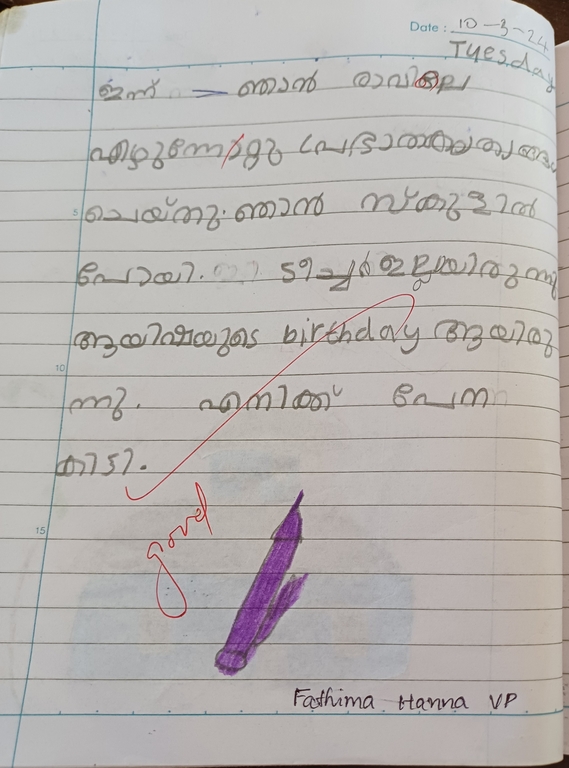 Date : 10-3-24
Tuesday
ഇന്ന് ഞാൻ രാവിലെ
എഴുന്നേറ്റു പ്രഭാതകൃത്യങ്ങൾ
5
ചെയ്തു. ഞാൻ സ്കൂളിൽ
പോയി. ടീച്ചർ ഇല്ലായിരുന്നു
ആയിഷയുടെ birthday ആയിരു
10
ന്നു. എനിക്ക് പേന
കിട്ടി.
good
15
Fathima Hanna VP